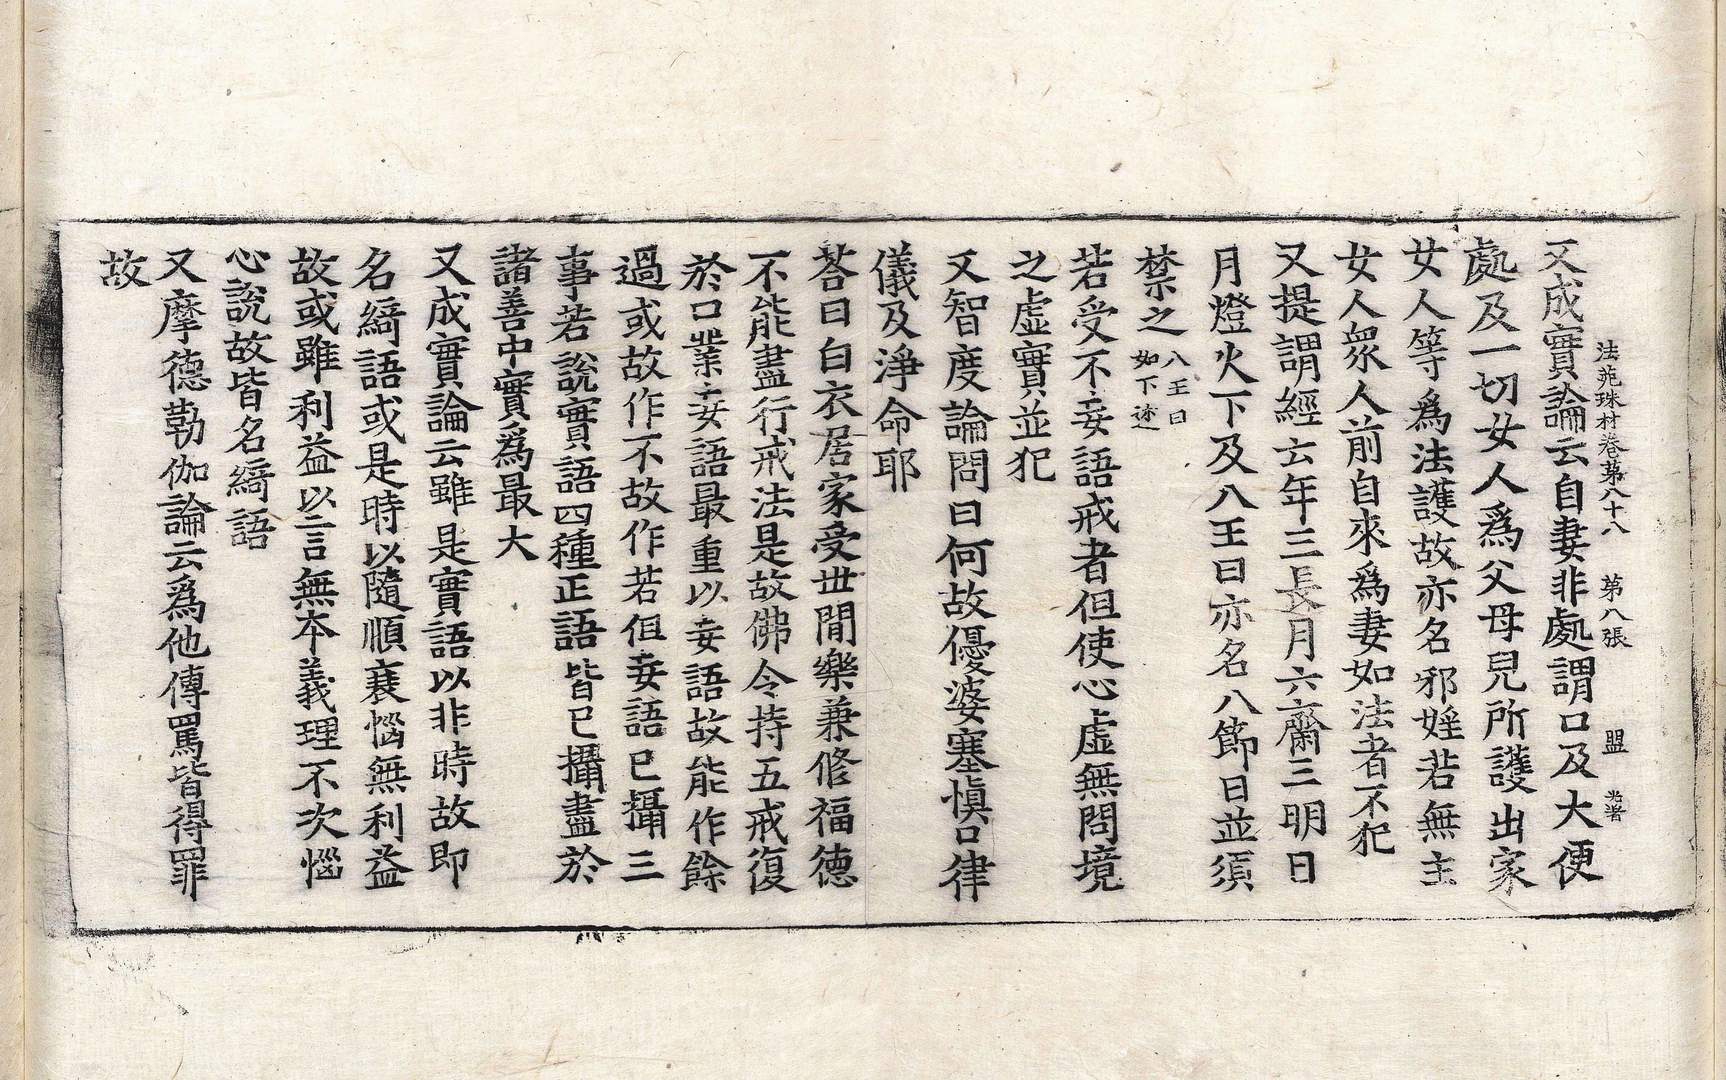 法苑珠林卷第八十八 第八張 盟
又成實論云自妻非處謂口及大便
處及一切女人爲父母兒所護出家
女人等爲法護故亦名邪婬若無主
女人衆人前自來爲妻如法者不犯
又提謂經云年三長月六齋三明日
月燈火下及八王日亦名八節日並須
禁之八王日如下述
若受不妄語戒者但使心虛無問境
之虛實並犯
又智度論問曰何故優婆塞愼口律
儀及淨命耶
荅曰白衣居家受世閒樂兼修福德
不能盡行戒法是故佛令持五戒復
於口業妄語最重以妄語故能作餘
過或故作不故作若但妄語已攝三
事若說實語四種正語皆已攝盡於
諸善中實爲最大
又成實論云雖是實語以非時故即
名綺語或是時以隨順衰惱無利益
故或雖利益以言無夲義理不次惱
心說故皆名綺語
又摩德勒伽論云爲他傳罵皆得罪
故